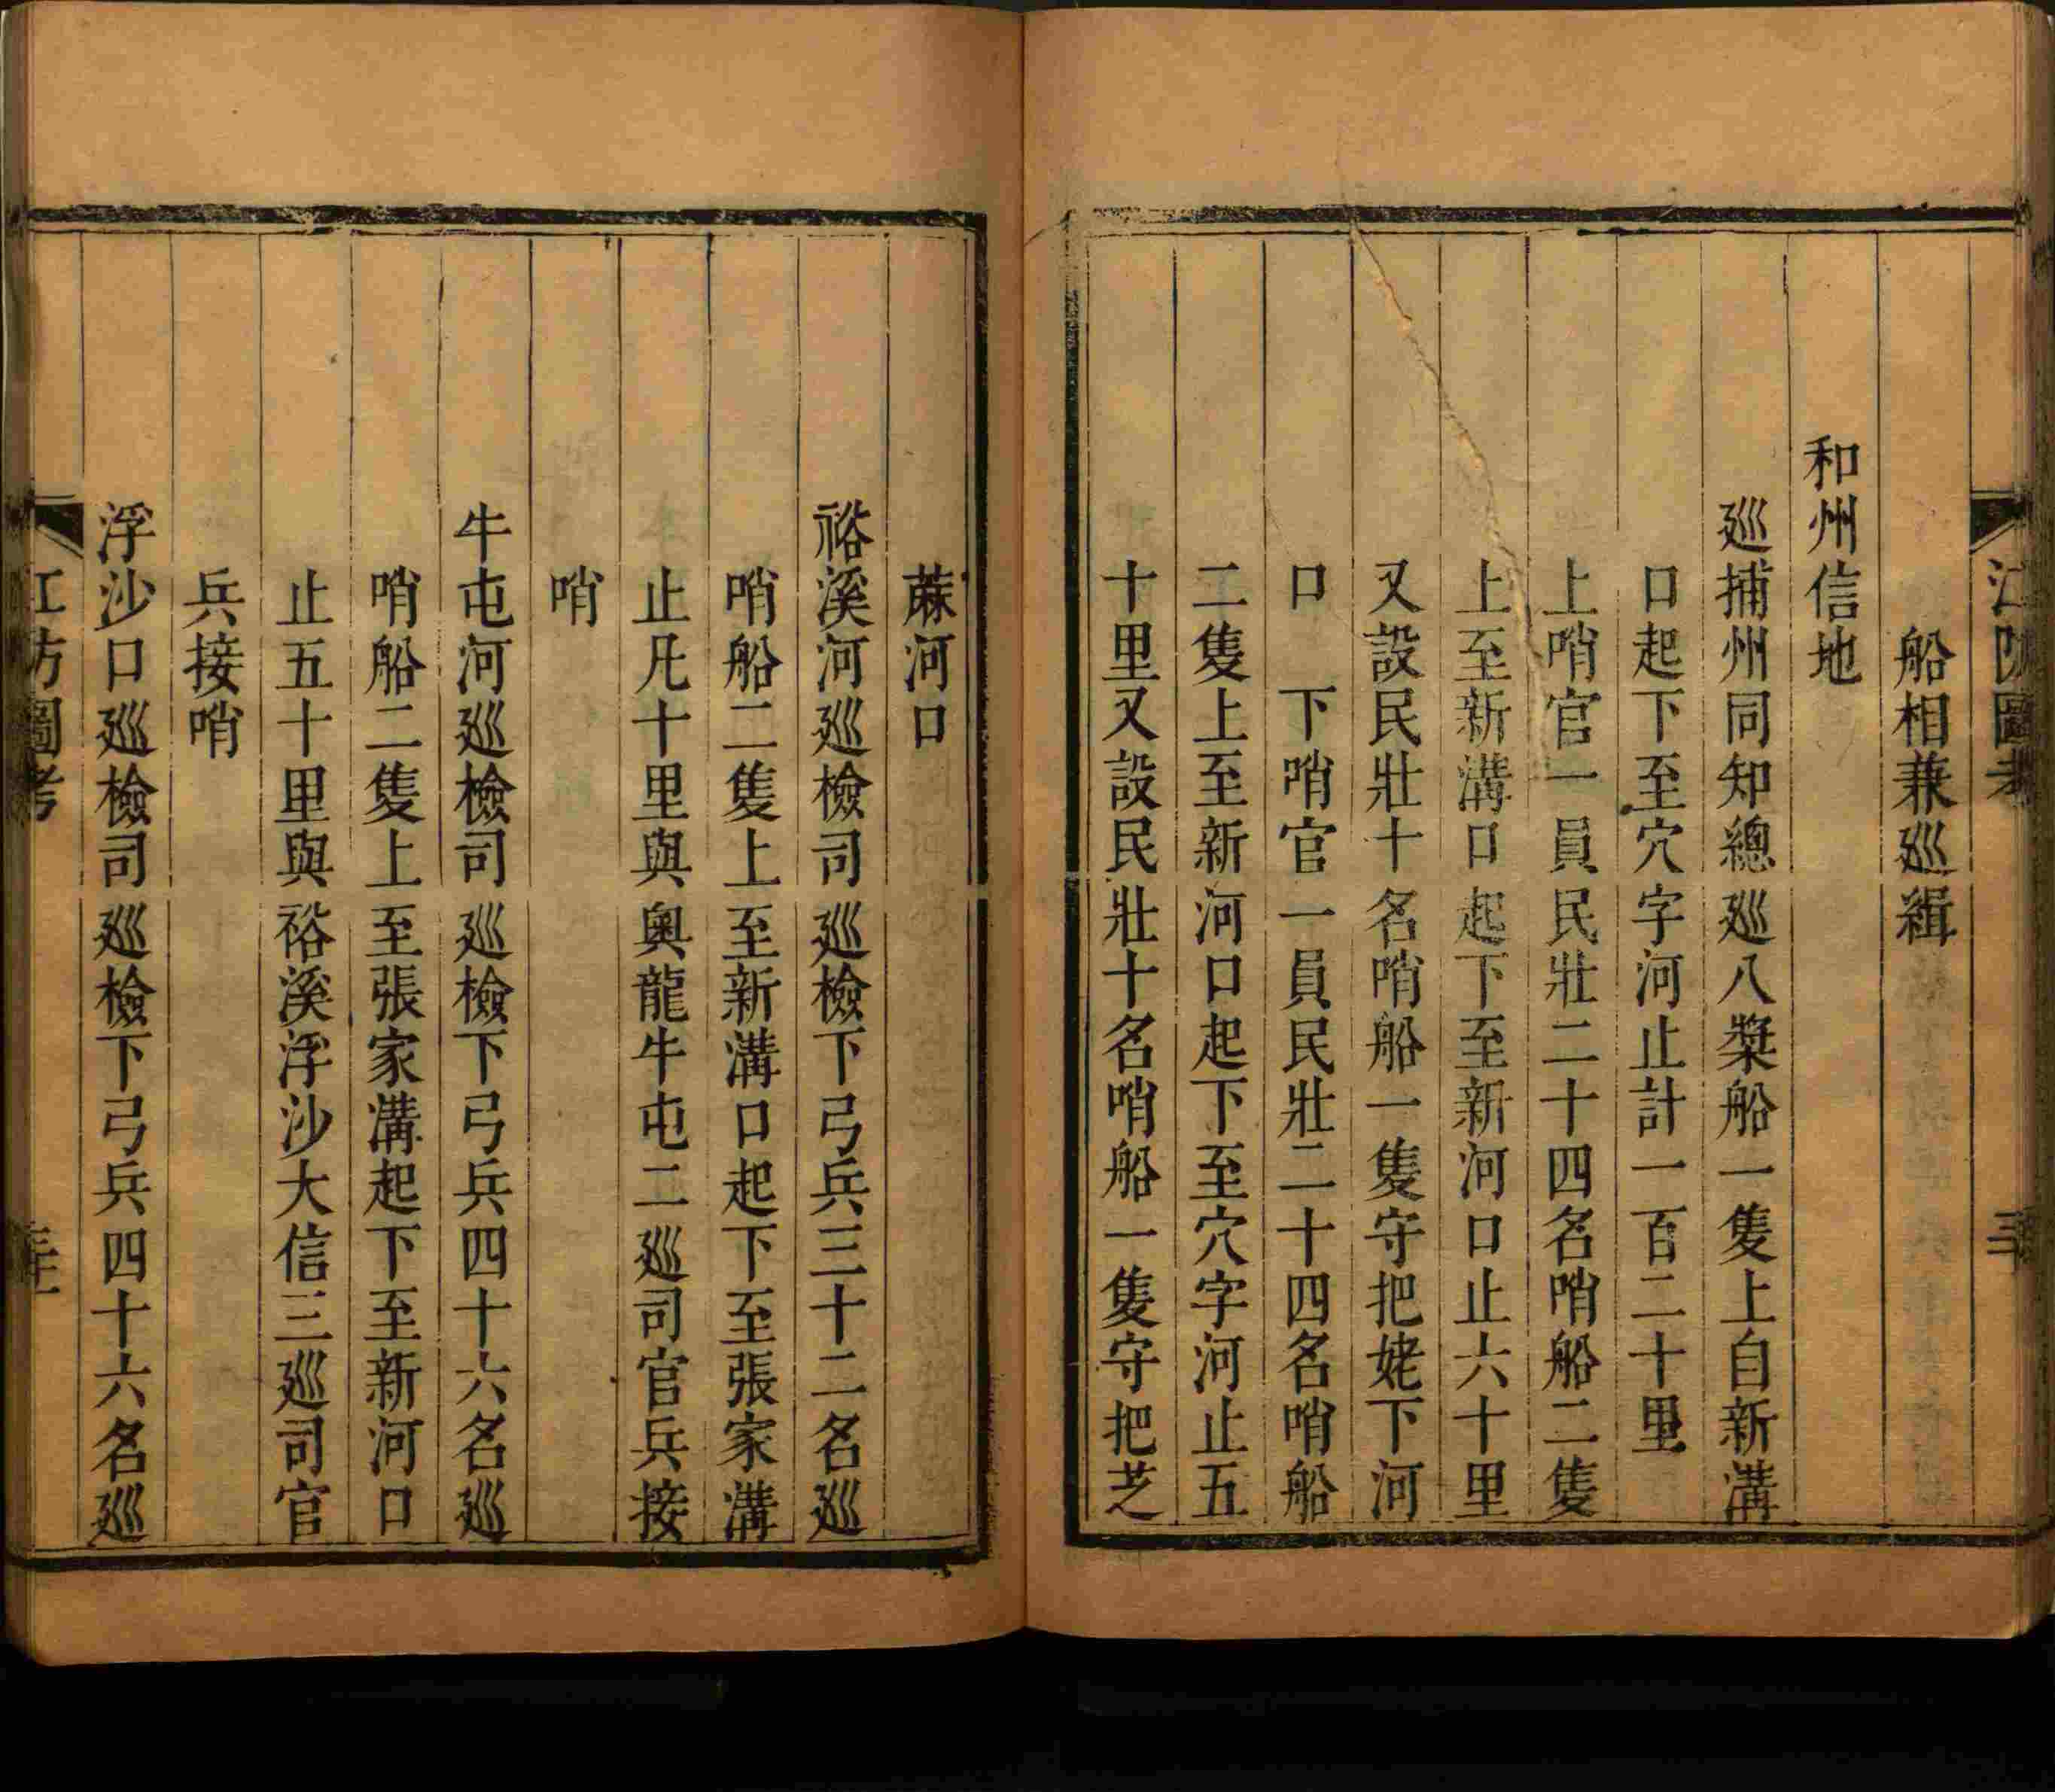 江防圖考
三十
船相兼廵緝
和州信地
廵捕州同知總廵八槳船一隻上自新溝
口起下至穴字河止計一百二十里
上哨官一員民壯二十四名哨船二隻
上至新溝口起下至新河口止六十里
又設民壯十名哨船一隻守把姥下河
口　下哨官一員民壯二十四名哨船
二隻上至新河口起下至穴字河止五
十里又設民壯十名哨船一隻守把芝
蔴河口
裕溪河廵檢司廵檢下弓兵三十二名廵
哨船二隻上至新溝口起下至張家溝
止凡十里與奥龍牛屯二廵司官兵接
哨
牛屯河廵檢司廵檢下弓兵四十六名廵
哨船二隻上至張家溝起下至新河口
止五十里與裕溪浮沙大信三廵司官
兵接哨
浮沙口廵檢司廵檢下弓兵四十六名廵
江防圖考